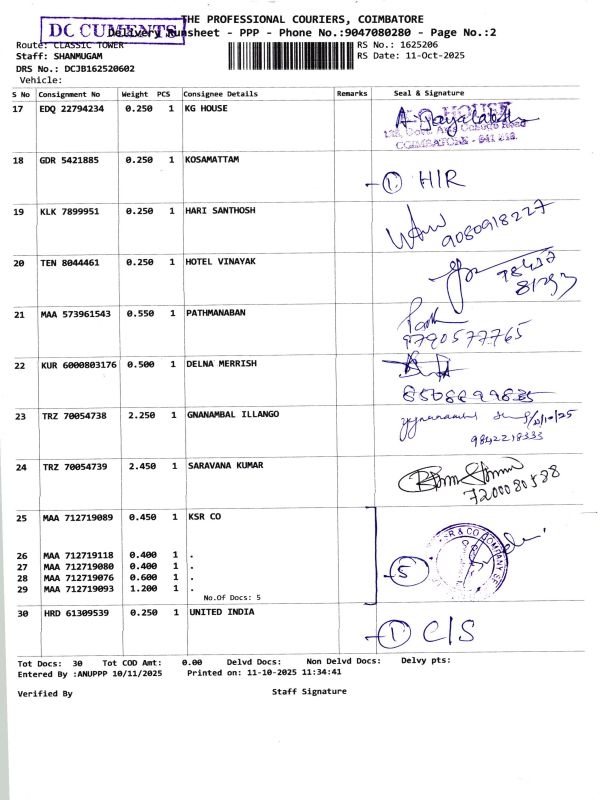 THE PROFESSIONAL COURIERS, COIMBATORE
DC CUMENTS
Delivery Runsheet - PPP - Phone No.:9047080280 - Page No.:2
Route: CLASSIC TOWER
RS No.: 1625206
Staff: SHANMUGAM
RS Date: 11-Oct-2025
DRS No.: DCJB162520602
Vehicle:
S No Consignment No Weight PCS Consignee Details Remarks Seal & Signature
17 EDQ 22794234 0.250 1 KG HOUSE
COIMBATORE - 641 018.
18 GDR 5421885 0.250 1 KOSAMATTAM
1 HIR
19 KLK 7899951 0.250 1 HARI SANTHOSH
9080918227
20 TEN 8044461 0.250 1 HOTEL VINAYAK
78437
81293
21 MAA 573961543 0.550 1 PATHMANABAN
9790577765
22 KUR 6000803176 0.500 1 DELNA MERRISH
23 TRZ 70054738 2.250 1 GNANAMBAL ILLANGO
9842218333
24 TRZ 70054739 2.450 1 SARAVANA KUMAR
25 MAA 712719089 0.450 1 KSR CO
26 MAA 712719118 0.400 1 .
27 MAA 712719080 0.400 1 .
28 MAA 712719076 0.600 1 .
29 MAA 712719093 1.200 1 .
No.Of Docs: 5
5
30 HRD 61309539 0.250 1 UNITED INDIA
1 C/S
Tot Docs: 30 Tot COD Amt: 0.00 Delvd Docs: Non Delvd Docs: Delvy pts:
Entered By :ANUPPP 10/11/2025 Printed on: 11-10-2025 11:34:41
Verified By
Staff Signature